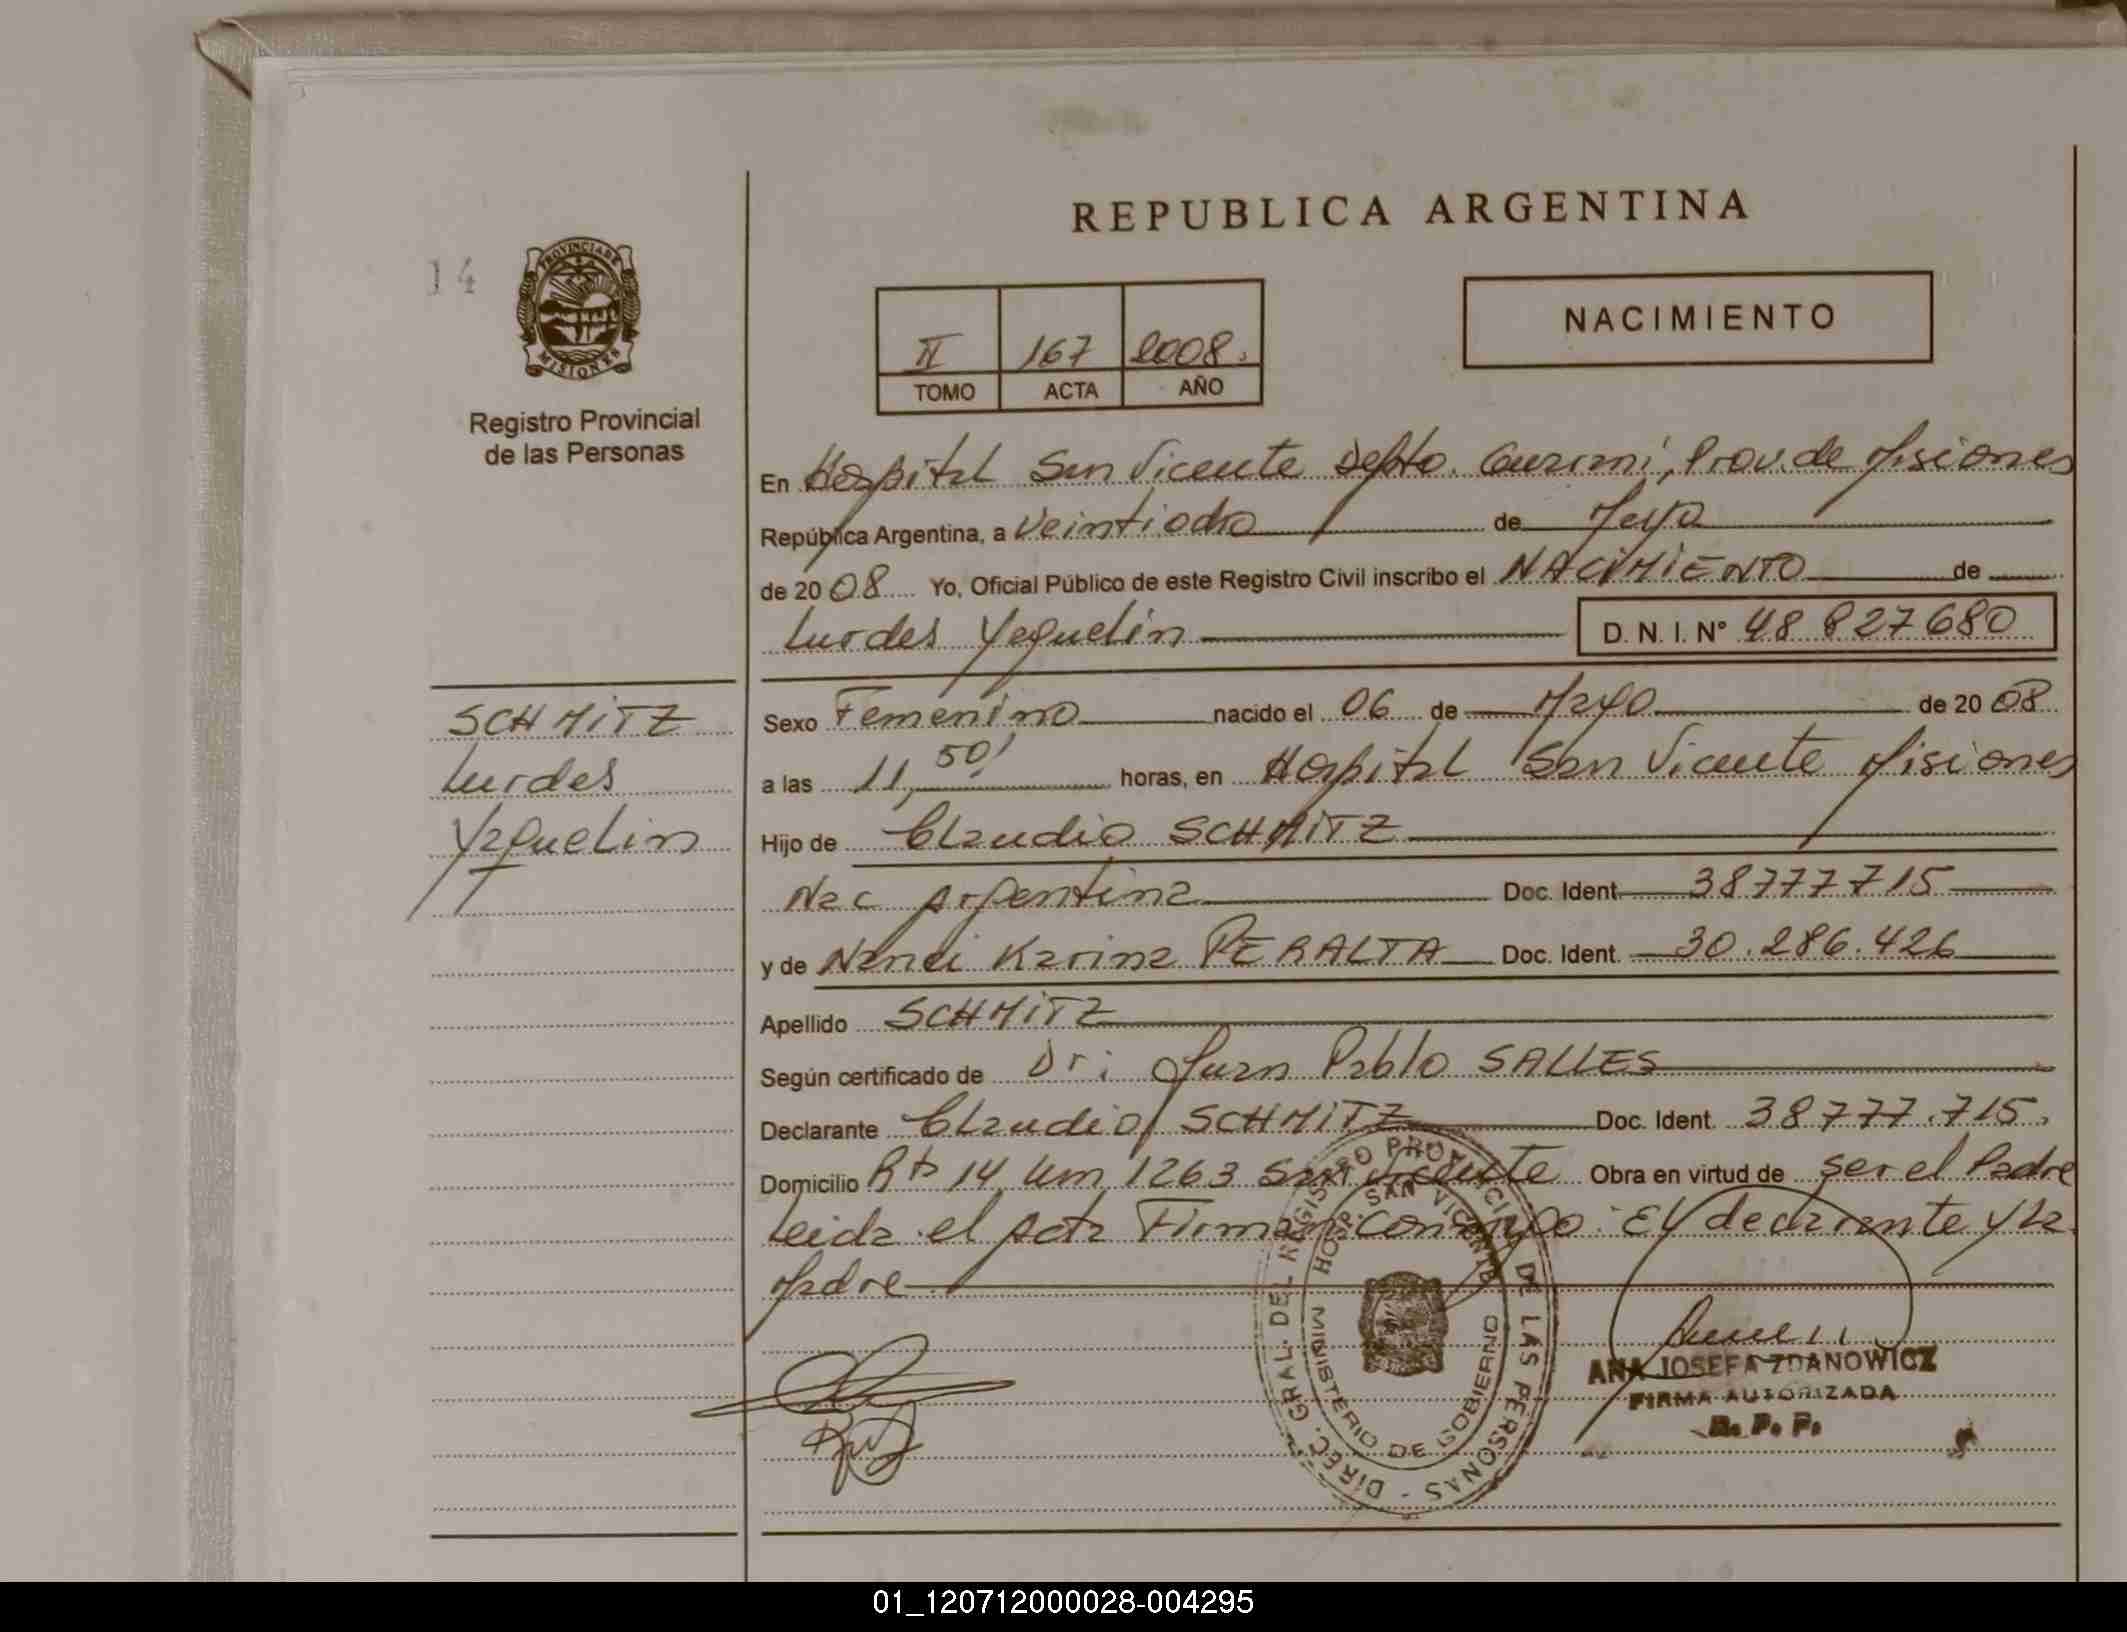 REPUBLICA ARGENTINA
14
PROVINCIA DE
MISIONES
Registro Provincial
de las Personas
II 167 2008.
TOMO ACTA AÑO
NACIMIENTO
En Hospital San Vicente Depto. Guarani, Prov. de Misiones
República Argentina, a Veintiocho de Mayo
de 2008 Yo, Oficial Público de este Registro Civil inscribo el NACIMIENTO de
Lurdes Yaquelin D. N. I. Nº 48 827680
SCHMITZ
Lurdes
Yaquelin
Sexo Femenino nacido el 06 de Mayo de 2008
a las 11,50' horas, en Hospital San Vicente Misiones
Hijo de Claudio SCHMITZ
Nac Argentina Doc. Ident. 38777715
y de Nanci Karina PERALTA Doc. Ident. 30.286.426
Apellido SCHMITZ
Según certificado de Dr: Juan Pablo SALLES
Declarante Claudio SCHMITZ Doc. Ident. 38777.715.
Domicilio Rta 14 km 1263 San Vicente Obra en virtud de ser el Padre
Leida el Acta Firman conmigo: El declarante y la
Madre
DIREC. GRAL. DEL REGISTRO PROVINCIAL DE LAS PERSONAS -
HOSP. SAN VICENTE
MINISTERIO DE GOBIERNO
ANA JOSEFA ZDANOWICZ
FIRMA AUTORIZADA
R. P. P.
01_120712000028-004295